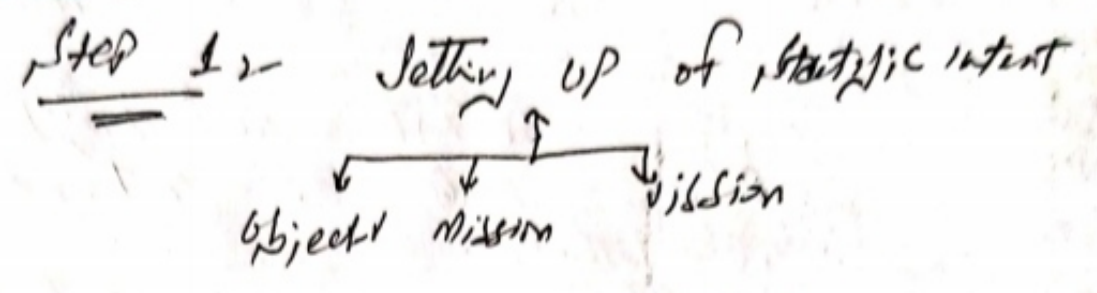 Step 1:- Setting up of strategic intent
Object Mission Vission